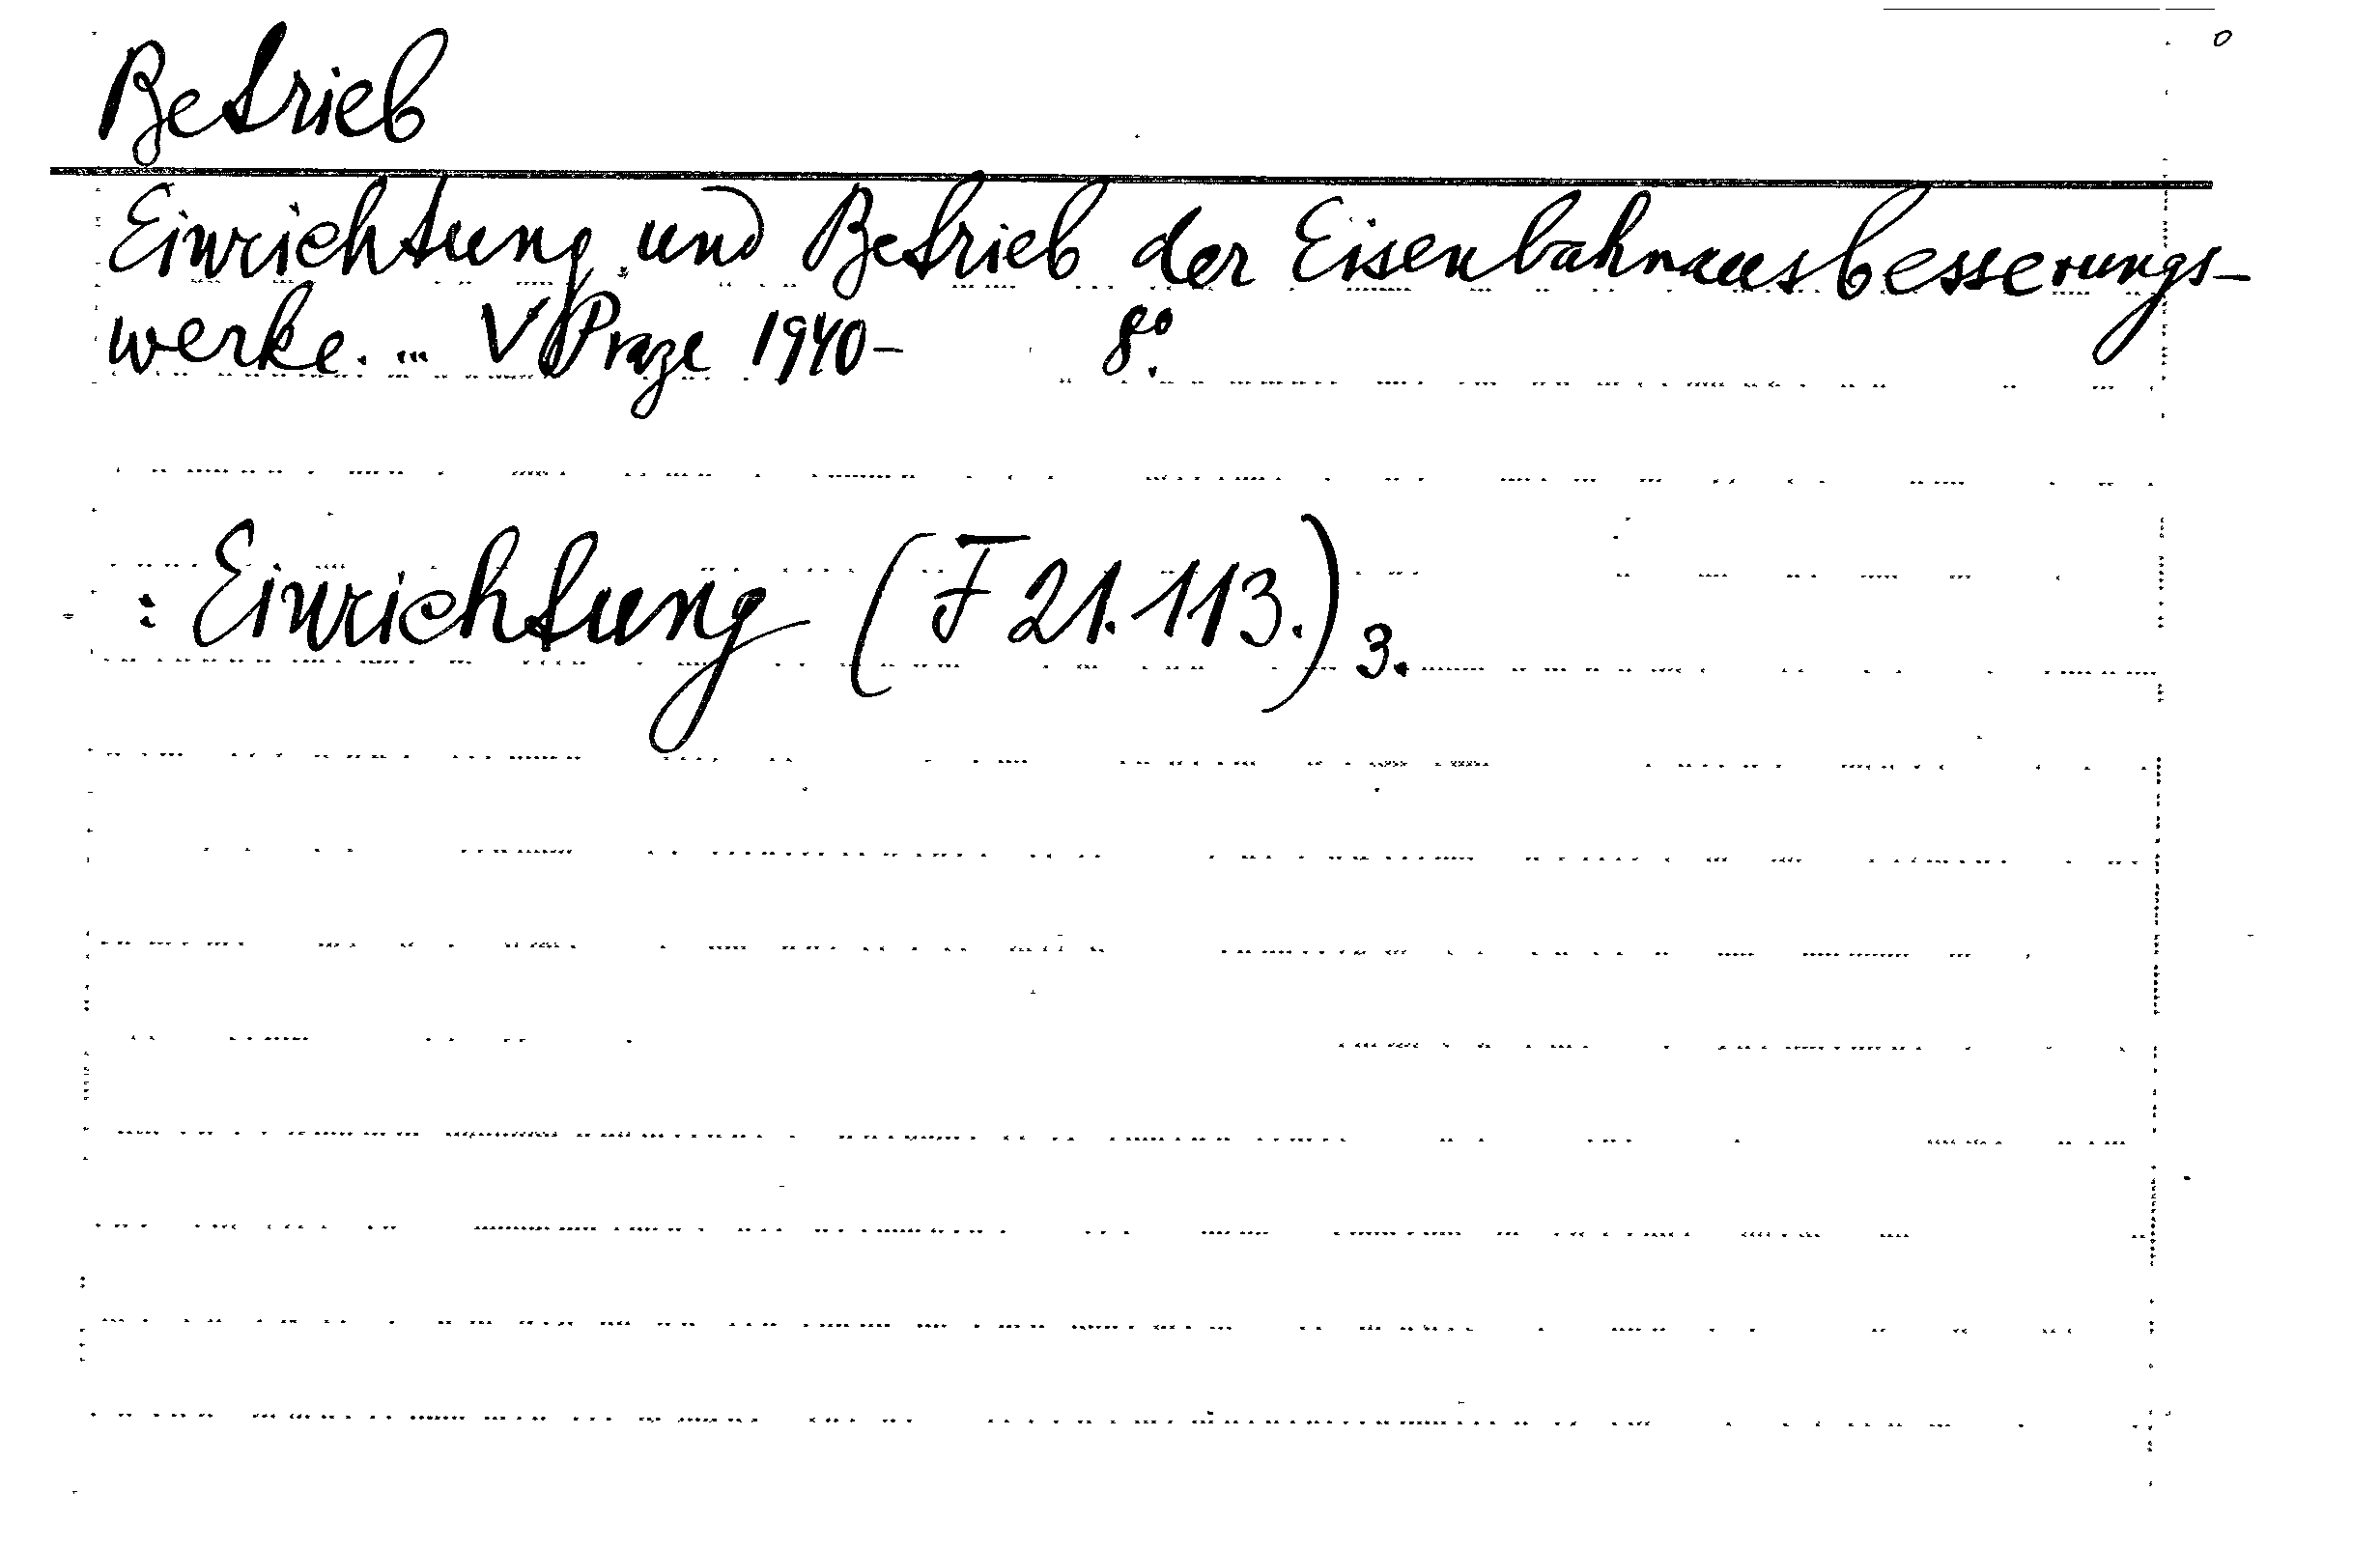 Betrieb
Einrichtung und Betrieb der Eisenbahnausbesserungs-
werke. ... V Praze 1940- 8°.
: Einrichtung (F 21.113.) 3.